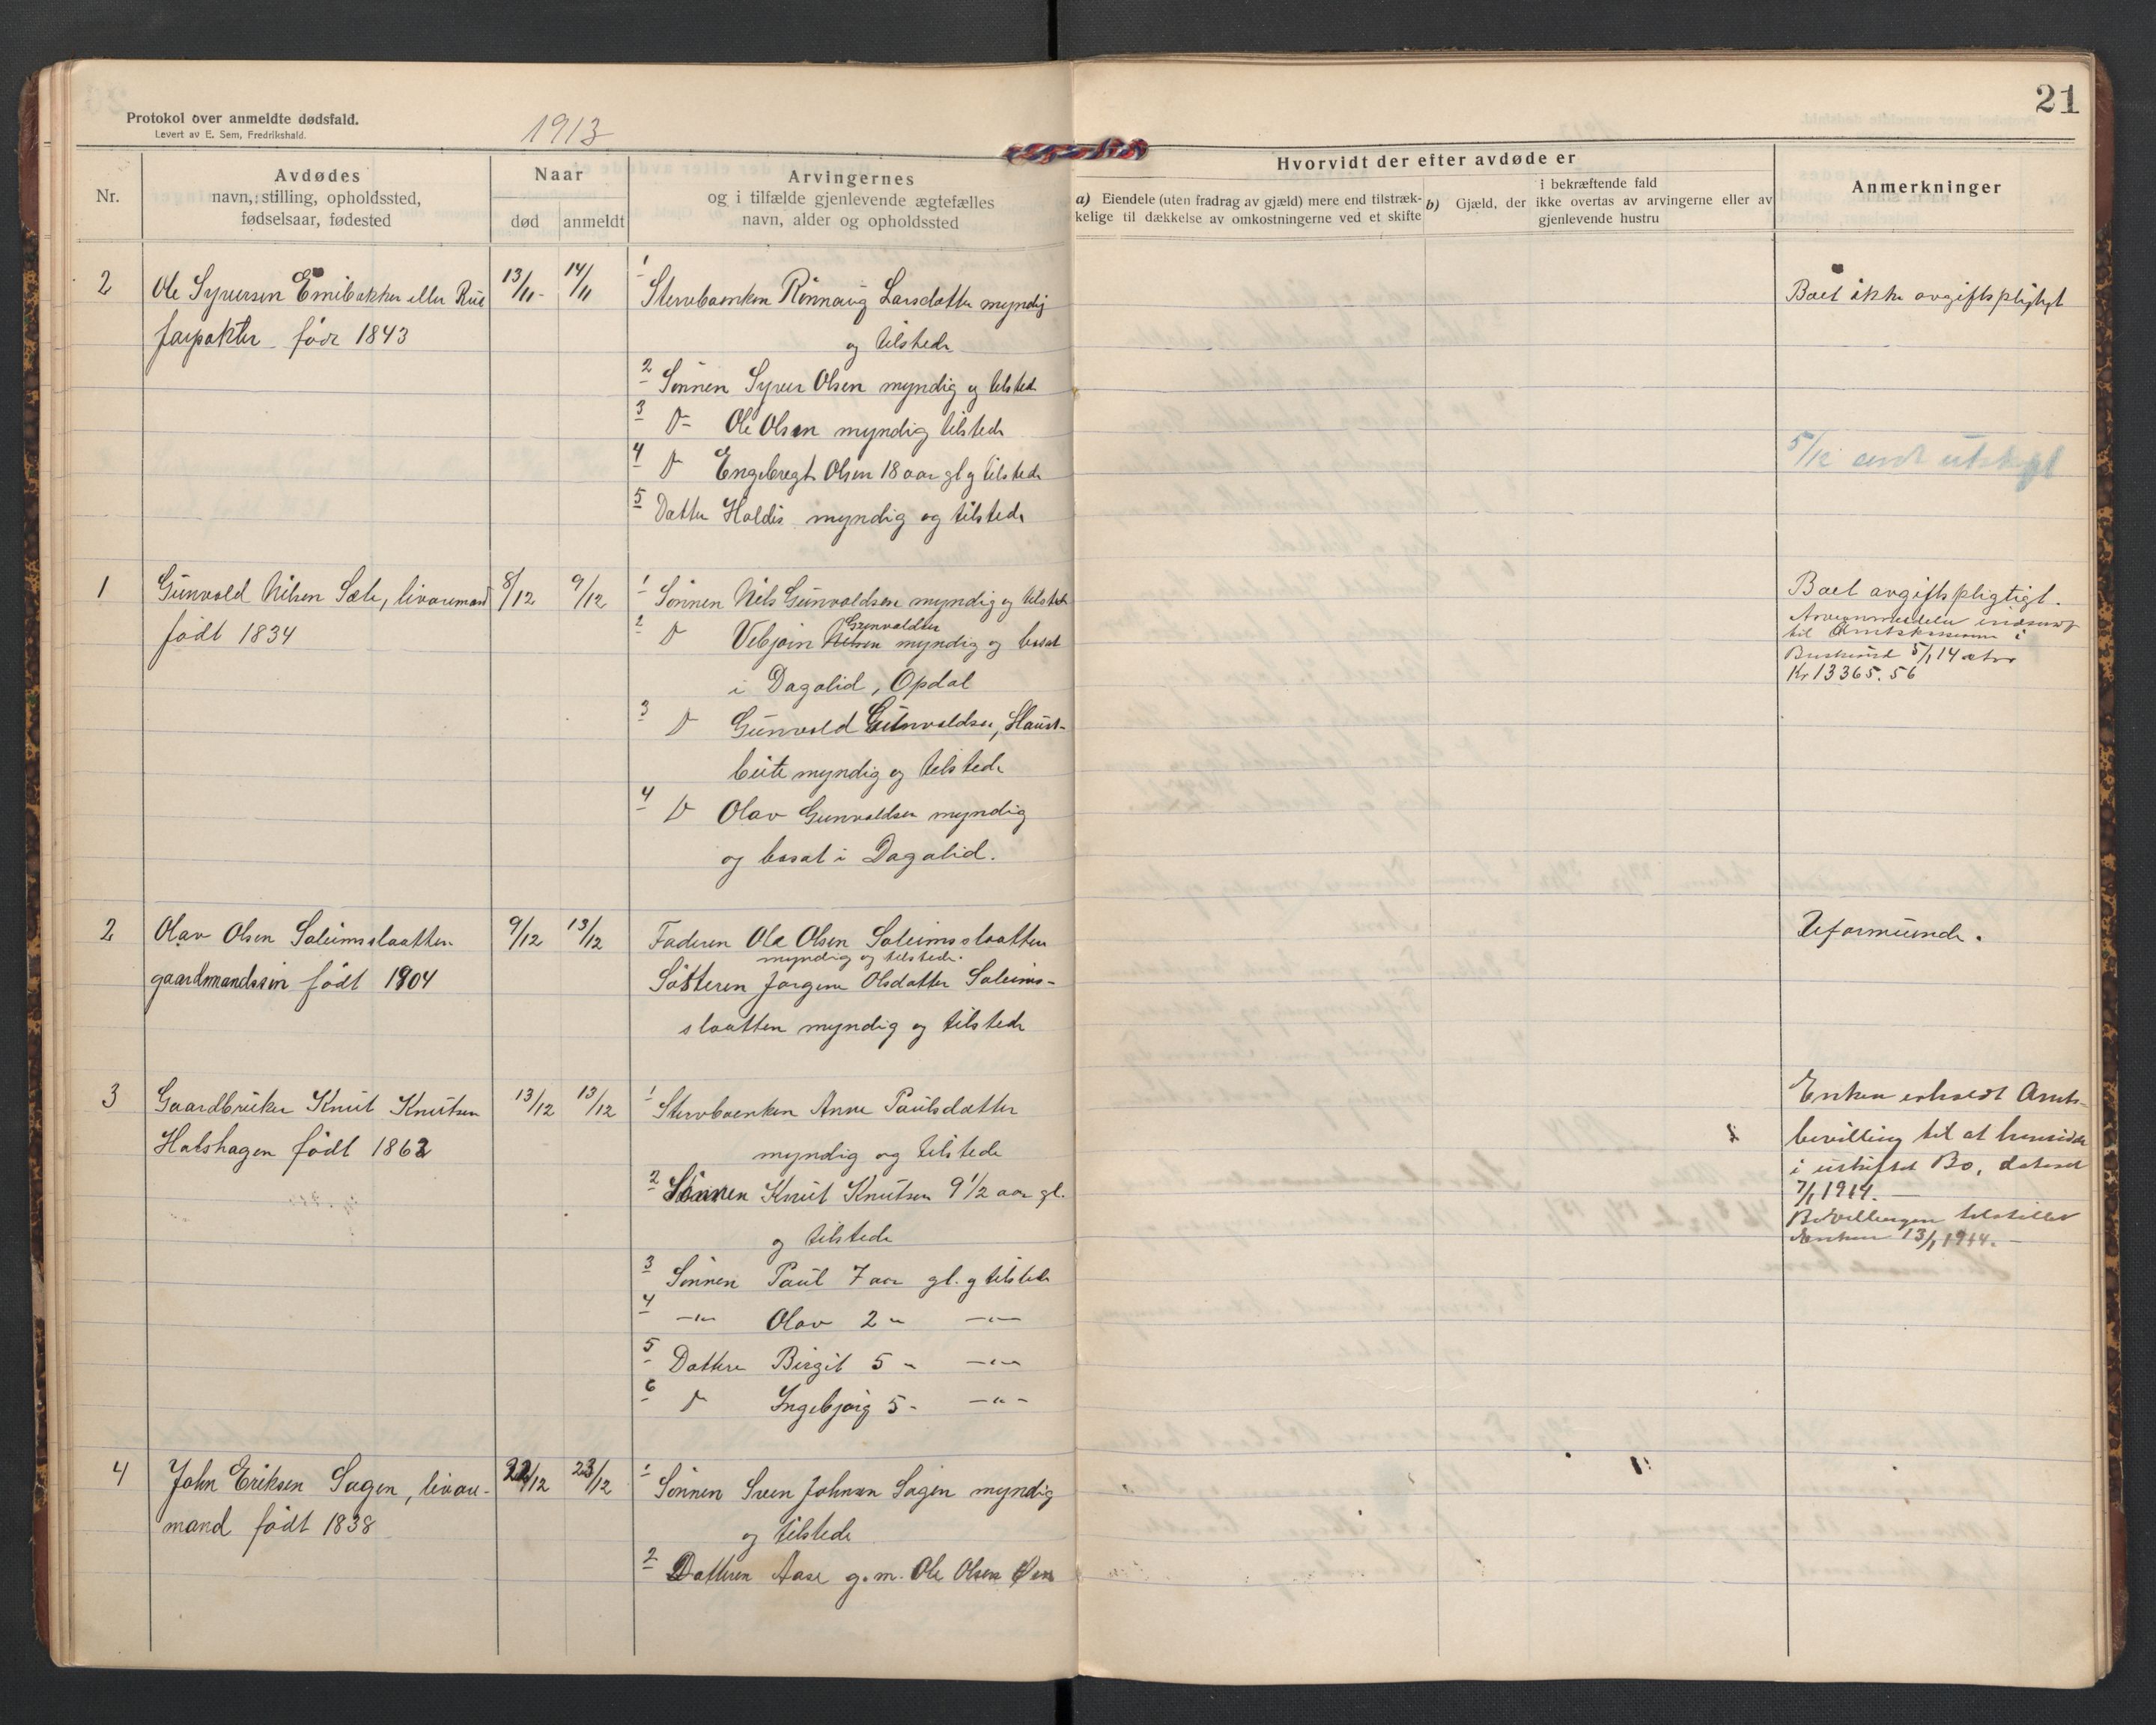 21
Protokol over anmeldte dødsfald.
Levert av E. Sem, Fredrikshald.
1913
Nr.
Avdødes
navn, stilling, opholdssted,
fødselsaar, fødested
Naar
død
anmeldt
Arvingernes
og i tilfælde gjenlevende ægtefælles
navn, alder og opholdssted
Hvorvidt der efter avdøde er
a) Eiendele (uten fradrag av gjæld) mere end tilstræk-
kelige til dækkelse av omkostningerne ved et skifte
i bekræftende fald
b) Gjæld, der ikke overtas av arvingerne eller av
gjenlevende hustru
Anmerkninger
2
Ole Syversen Ennibakken eller Rue
forpakter født 1843
13/11
14/11
1 Stervboenken Rønnaug Larsdatter myndig
og tilstede
2 Sønnen Syver Olsen myndig og tilstede
3 D Ole Olsen myndig tilstede
4 D Engebregt Olsen 18 aar gl og tilstede
5 Datter Haldis myndig og tilstede
Boet ikke avgiftspligtigt
5/12
1
Gunvold Nilsen Sæle, livøremand
født 1834
8/12
9/12
1 Sønnen Nils Gunvoldsen myndig og tilstede
Gunvoldsen
2 D Vebjørn Nilsen myndig og bosat
i Dagalid, Opdal
3 D Gunvold Gunvoldsen,
myndig og tilstede
4 D Olav Gunvoldsen myndig
og bosat i Dagalid.
Boet avgiftspligtigt.
Arveanmeldelse indsendt
til Amtskassereren i
Buskerud 5/1 14
Kr 13365.56
2
Olav Olsen Soleimsslaatten
gaardmandssøn født 1904
9/12
13/12
Faderen Ole Olsen Soleimsslaatten
myndig og tilstede.
Søsteren Jørgine Olsdatter Soleims-
slaatten myndig og tilstede
Uformuende.
3
Gaardbruker Knut Knutsen
Halshagen født 1862
13/12
13/12
1 Stervboenken Anne Paulsdatter
myndig og tilstede
2 Sønnen Knut Knutsen 9 1/2 aar gl.
og tilstede
3 Sønnen Paul 7 aar gl. og tilstede
4 -"- Olav 2 " -"-
5 Datteren Birgit 5 " -"-
6 D Ingebjørg 5 " -"-
Enken erholdt Amts-
bevilling til at hensidde
i uskiftet Bo, dateret
7/1 1914.
Bevillingen tilstillet
Enken 13/1 1914.
4
John Eriksen Sagen, livøre-
mand født 1838
22/12
23/12
1 Sønnen Sven Johnsen Sagen myndig
og tilstede
2 Datteren Aase g.m. Ole Olsen